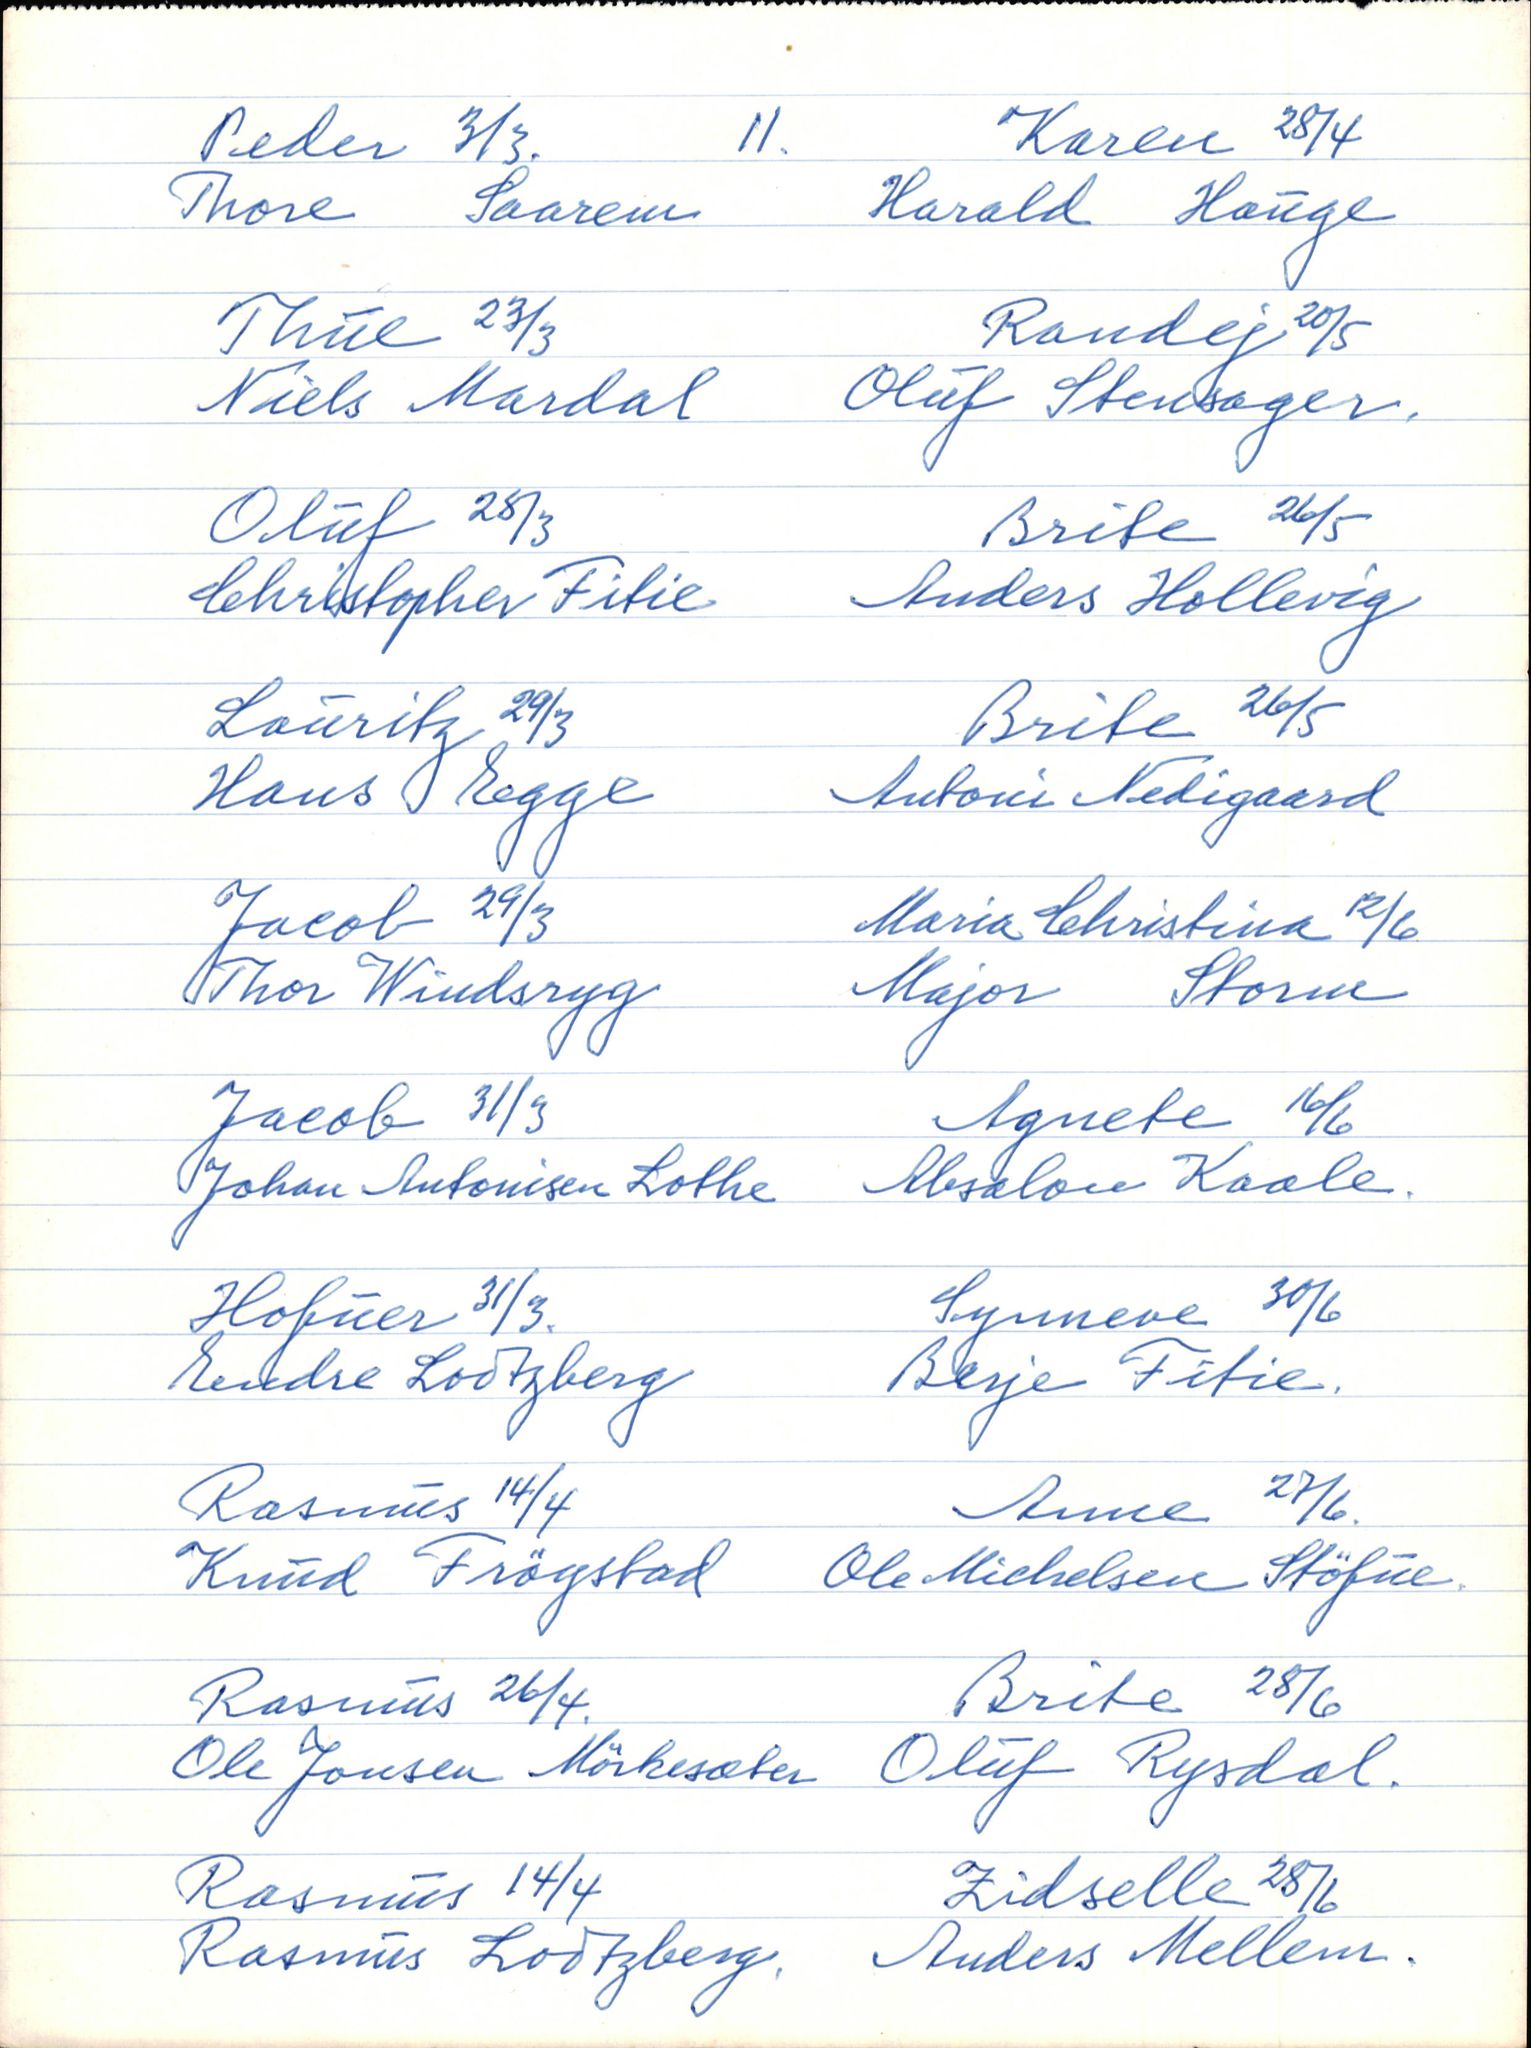 Peder 3/3. 11. Karen 28/4
Thore Saarem Harald Haüge
Thüe 23/3 Randej 20/5
Niels Mardal Olüf Stensager.
Olüf 28/3 Brite 26/5
Christopher Fitie Anders Hollevig
Laüritz 29/3 Brite 26/5
Hans Egge Antoni Nedigaard
Jacob 29/3 Maria Christina 12/6
Thor Windsryg Major Storm
Jacob 31/3 Agnete 16/6
Johan Antonisen Lothe Absalon Kaale.
Hofüer 31/3. Synneve 30/6
Endre Lodtzberg Berje Fitie.
Rasmüs 14/4 Anne 27/6.
Knüd Frögstad Ole Michelsen Stöfüe.
Rasmüs 26/4. Brite 28/6
Ole Jonsen Mörkesæter Olüf Rysdal.
Rasmüs 14/4 Zidselle 28/6
Rasmüs Lodtzberg. Anders Mellem.